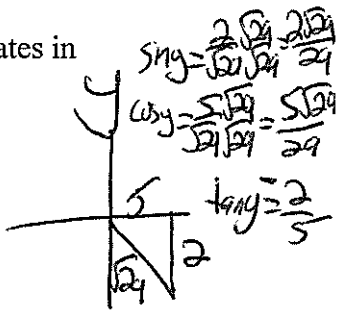 ates in
sin y = 2/√29 √29/√29 = 2√29/29
cos y = 5√29/√29√29 = 5√29/29
tan y = -2/5
y
5
2
√29